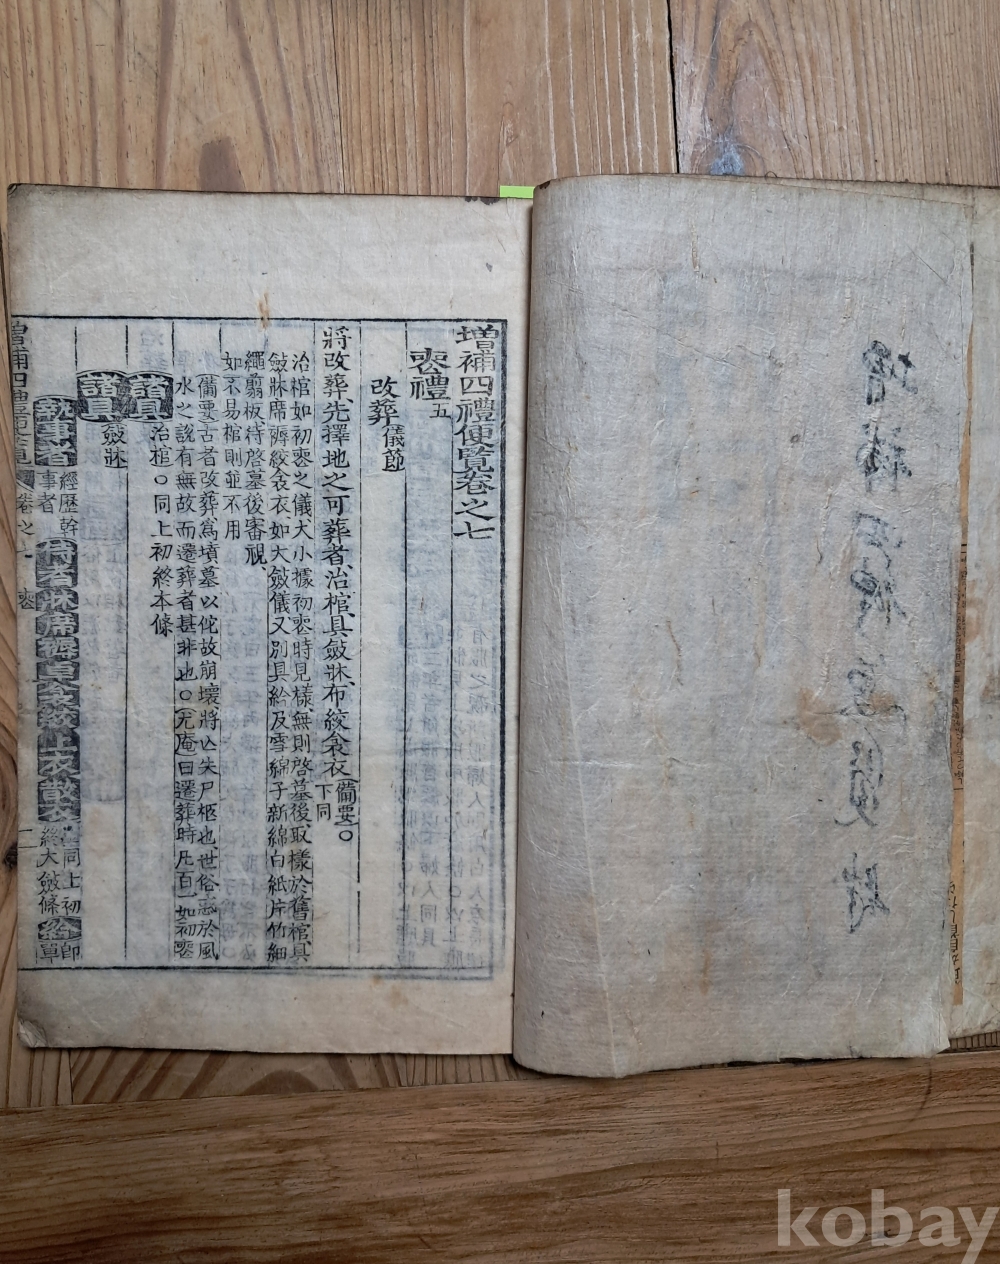 增補四禮便覽卷之七
喪禮五
改葬儀節
將改葬、先擇地之可葬者、治棺、具斂牀、布絞衾衣、備要○下同
治棺如初喪之儀大小據初喪時見樣、無則啓墓後取樣於舊棺、具
斂牀席褥絞衾衣如大斂儀又別具紟及雪綿子新綿白紙片竹細
繩翦板待啓墓後審視、
如不易棺則並不用
備要古者改葬爲墳墓以佗故崩壞將亡失尸柩也世俗惑於風
水之說有無故而遷葬者甚非也○尤庵曰遷葬時凡百一如初喪
諸具治棺○同上初終本條
諸具斂牀
執事者經歷幹事者侍者牀席褥卓衾絞上衣散衣同上初終大斂條紟卽單
增補四禮便覽 卷之七 喪 一
增補四禮便覽
kobay